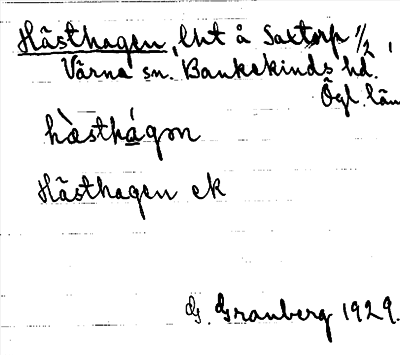 Hästhagen, lht å Saxtorp 1/2,
Vårna sn. Bankekinds hd.
Ögl. län
hàsthágən
Hästhagen ek
G. Granberg 1929.